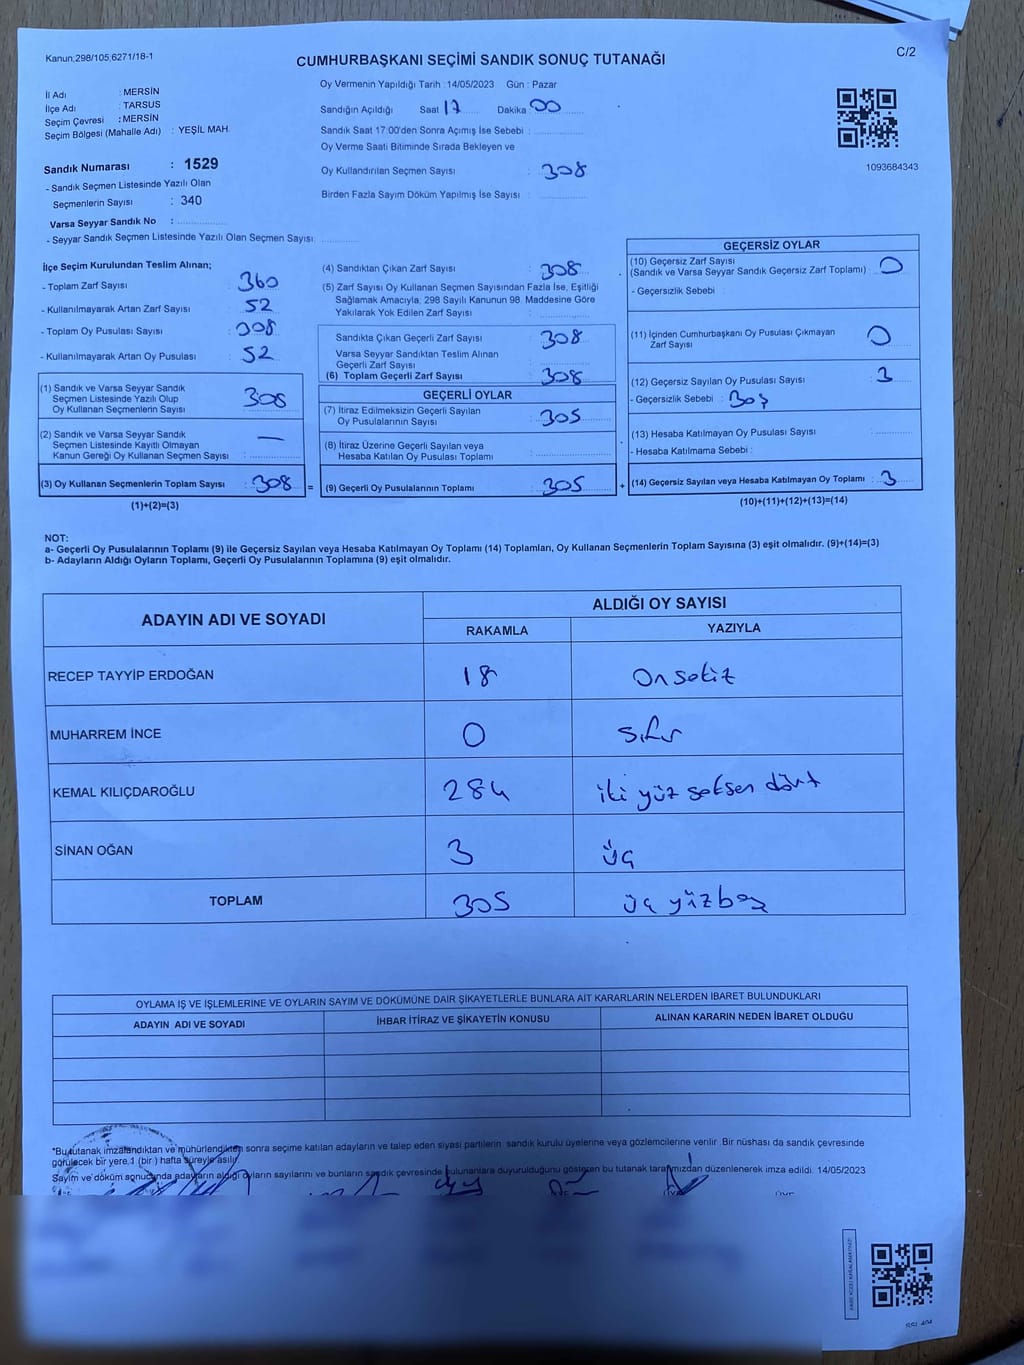 Kanun;298/105;6271/18-1
C/2
CUMHURBAŞKANI SEÇİMİ SANDIK SONUÇ TUTANAĞI
Oy Vermenin Yapıldığı Tarih : 14/05/2023 Gün : Pazar
İl Adı : MERSİN
İlçe Adı : TARSUS
Seçim Çevresi : MERSİN
Seçim Bölgesi (Mahalle Adı) : YEŞİL MAH.
Sandığın Açıldığı Saat 17 Dakika 00
Sandık Saat 17:00'den Sonra Açımış İse Sebebi :
Oy Verme Saati Bitiminde Sırada Bekleyen ve
Oy Kullandırılan Seçmen Sayısı : 308
Birden Fazla Sayım Döküm Yapılmış İse Sayısı :
1093684343
Sandık Numarası : 1529
- Sandık Seçmen Listesinde Yazılı Olan
Seçmenlerin Sayısı : 340
Varsa Seyyar Sandık No :
- Seyyar Sandık Seçmen Listesinde Yazılı Olan Seçmen Sayısı:
İlçe Seçim Kurulundan Teslim Alınan;
- Toplam Zarf Sayısı : 360
- Kullanılmayarak Artan Zarf Sayısı : 52
- Toplam Oy Pusulası Sayısı : 308
- Kullanılmayarak Artan Oy Pusulası : 52
(1) Sandık ve Varsa Seyyar Sandık
Seçmen Listesinde Yazılı Olup
Oy Kullanan Seçmenlerin Sayısı : 308
(2) Sandık ve Varsa Seyyar Sandık
Seçmen Listesinde Kayıtlı Olmayan
Kanun Gereği Oy Kullanan Seçmen Sayısı : —
(3) Oy Kullanan Seçmenlerin Toplam Sayısı : 308 =
(1)+(2)=(3)
(4) Sandıktan Çıkan Zarf Sayısı : 308
(5) Zarf Sayısı Oy Kullanan Seçmen Sayısından Fazla İse, Eşitliği
Sağlamak Amacıyla, 298 Sayılı Kanunun 98. Maddesine Göre
Yakılarak Yok Edilen Zarf Sayısı :
Sandıkta Çıkan Geçerli Zarf Sayısı : 308
Varsa Seyyar Sandıktan Teslim Alınan
Geçerli Zarf Sayısı :
(6) Toplam Geçerli Zarf Sayısı : 308
GEÇERLİ OYLAR
(7) İtiraz Edilmeksizin Geçerli Sayılan
Oy Pusulalarının Sayısı : 305
(8) İtiraz Üzerine Geçerli Sayılan veya
Hesaba Katılan Oy Pusulası Toplamı :
(9) Geçerli Oy Pusulalarının Toplamı : 305 +
GEÇERSİZ OYLAR
(10) Geçersiz Zarf Sayısı
(Sandık ve Varsa Seyyar Sandık Geçersiz Zarf Toplamı) : 0
- Geçersizlik Sebebi :
(11) İçinden Cumhurbaşkanı Oy Pusulası Çıkmayan
Zarf Sayısı : 0
(12) Geçersiz Sayılan Oy Pusulası Sayısı : 3
- Geçersizlik Sebebi : Boş
(13) Hesaba Katılmayan Oy Pusulası Sayısı :
- Hesaba Katılmama Sebebi :
(14) Geçersiz Sayılan veya Hesaba Katılmayan Oy Toplamı : 3
(10)+(11)+(12)+(13)=(14)
NOT:
a- Geçerli Oy Pusulalarının Toplamı (9) ile Geçersiz Sayılan veya Hesaba Katılmayan Oy Toplamı (14) Toplamları, Oy Kullanan Seçmenlerin Toplam Sayısına (3) eşit olmalıdır. (9)+(14)=(3)
b- Adayların Aldığı Oyların Toplamı, Geçerli Oy Pusulalarının Toplamına (9) eşit olmalıdır.
ADAYIN ADI VE SOYADI
ALDIĞI OY SAYISI
RAKAMLA YAZIYLA
RECEP TAYYİP ERDOĞAN 18 On sekiz
MUHARREM İNCE 0 sıfır
KEMAL KILIÇDAROĞLU 284 iki yüz seksen dört
SİNAN OĞAN 3 üç
TOPLAM 305 üç yüzbeş
OYLAMA İŞ VE İŞLEMLERİNE VE OYLARIN SAYIM VE DÖKÜMÜNE DAİR ŞİKAYETLERLE BUNLARA AİT KARARLARIN NELERDEN İBARET BULUNDUKLARI
ADAYIN ADI VE SOYADI İHBAR İTİRAZ VE ŞİKAYETİN KONUSU ALINAN KARARIN NEDEN İBARET OLDUĞU
*Bu tutanak imzalandıktan ve mühürlendikten sonra seçime katılan adayların ve talep eden siyasi partilerin sandık kurulu üyelerine veya gözlemcilerine verilir. Bir nüshası da sandık çevresinde
görülecek bir yere,1 (bir ) hafta süreyle asılır.
Sayım ve döküm sonucunda adayların aldığı oyların sayılarını ve bunların sandık çevresinde bulunanlara duyurulduğunu gösteren bu tutanak tarafımızdan düzenlenerek imza edildi. 14/05/2023